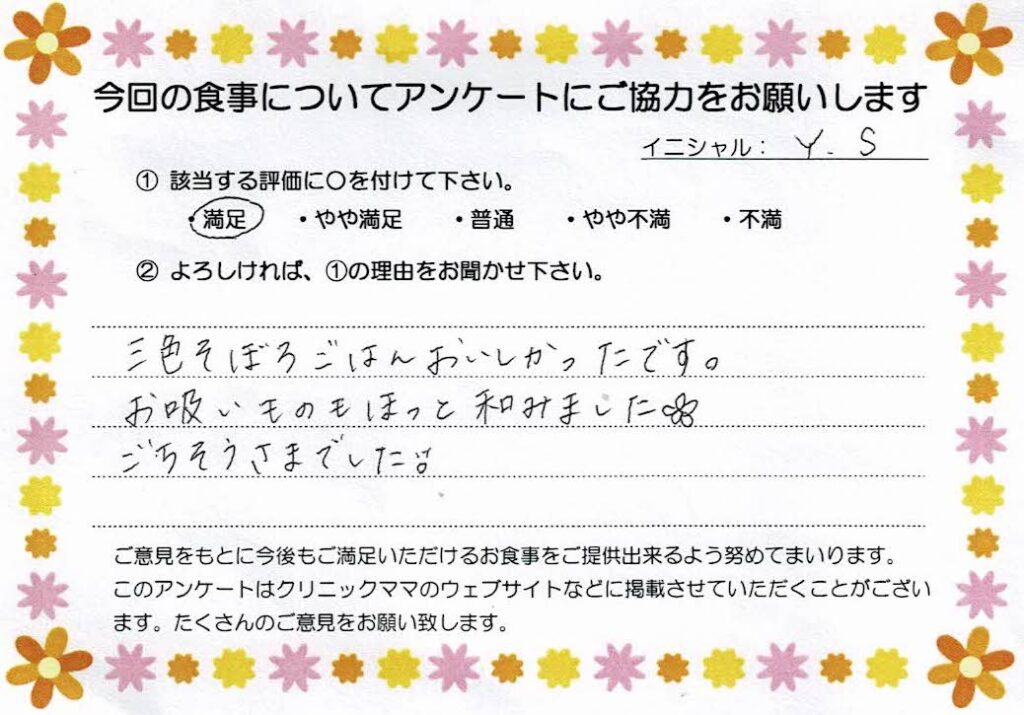 今回の食事についてアンケートにご協力をお願いします
イニシャル： Y. S
① 該当する評価に〇を付けて下さい。
・満足 ・やや満足 ・普通 ・やや不満 ・不満
② よろしければ、①の理由をお聞かせ下さい。
三色そぼろごはんおいしかったです。
お吸いものもほっと和みました
ごちそうさまでした
ご意見をもとに今後もご満足いただけるお食事をご提供出来るよう努めてまいります。
このアンケートはクリニックママのウェブサイトなどに掲載させていただくことがござい
ます。たくさんのご意見をお願い致します。